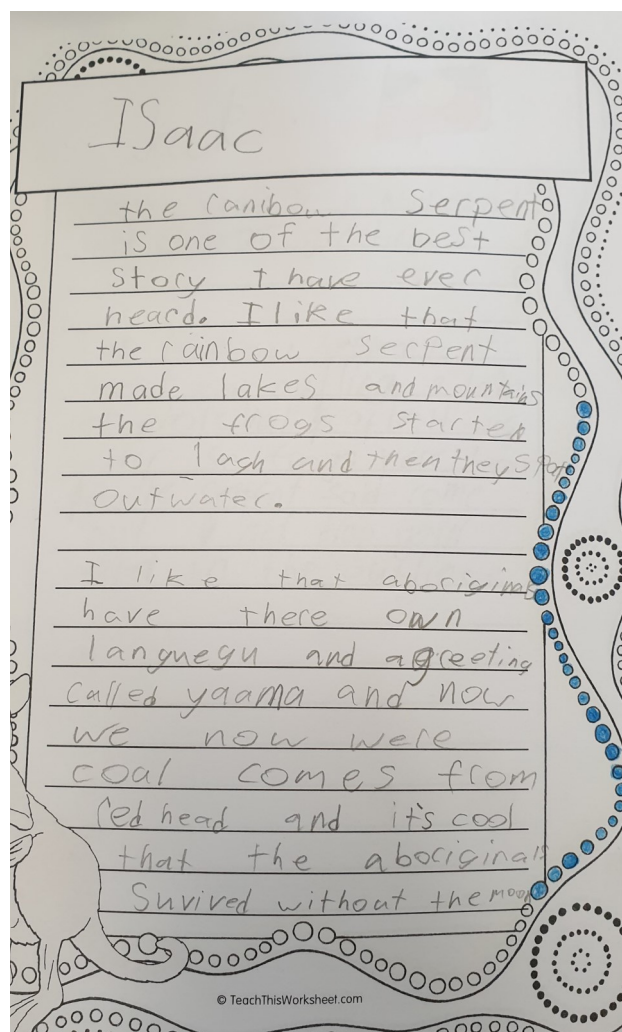 ISaac
the ranibow Serpent
is one of the best
story I have ever
heard. I like that
the rainbow serpent
made lakes and mountains
the frogs started
to lagh and then they Spat
out water.
I like that aboriginals
have there own
languegu and a greeting
called yaama and now
we now were
coal comes from
red head and it's cool
that the aboriginals
Survived without the
© TeachThisWorksheet.com